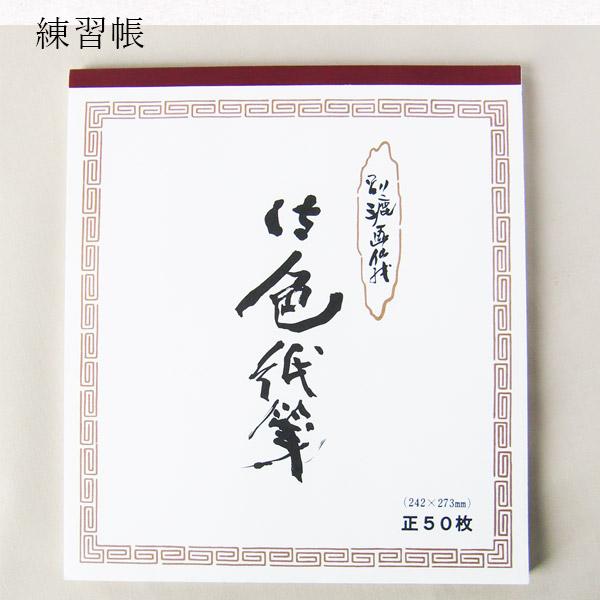 練習帳
別漉画仙紙
色紙箋
(242×273mm)
正50枚